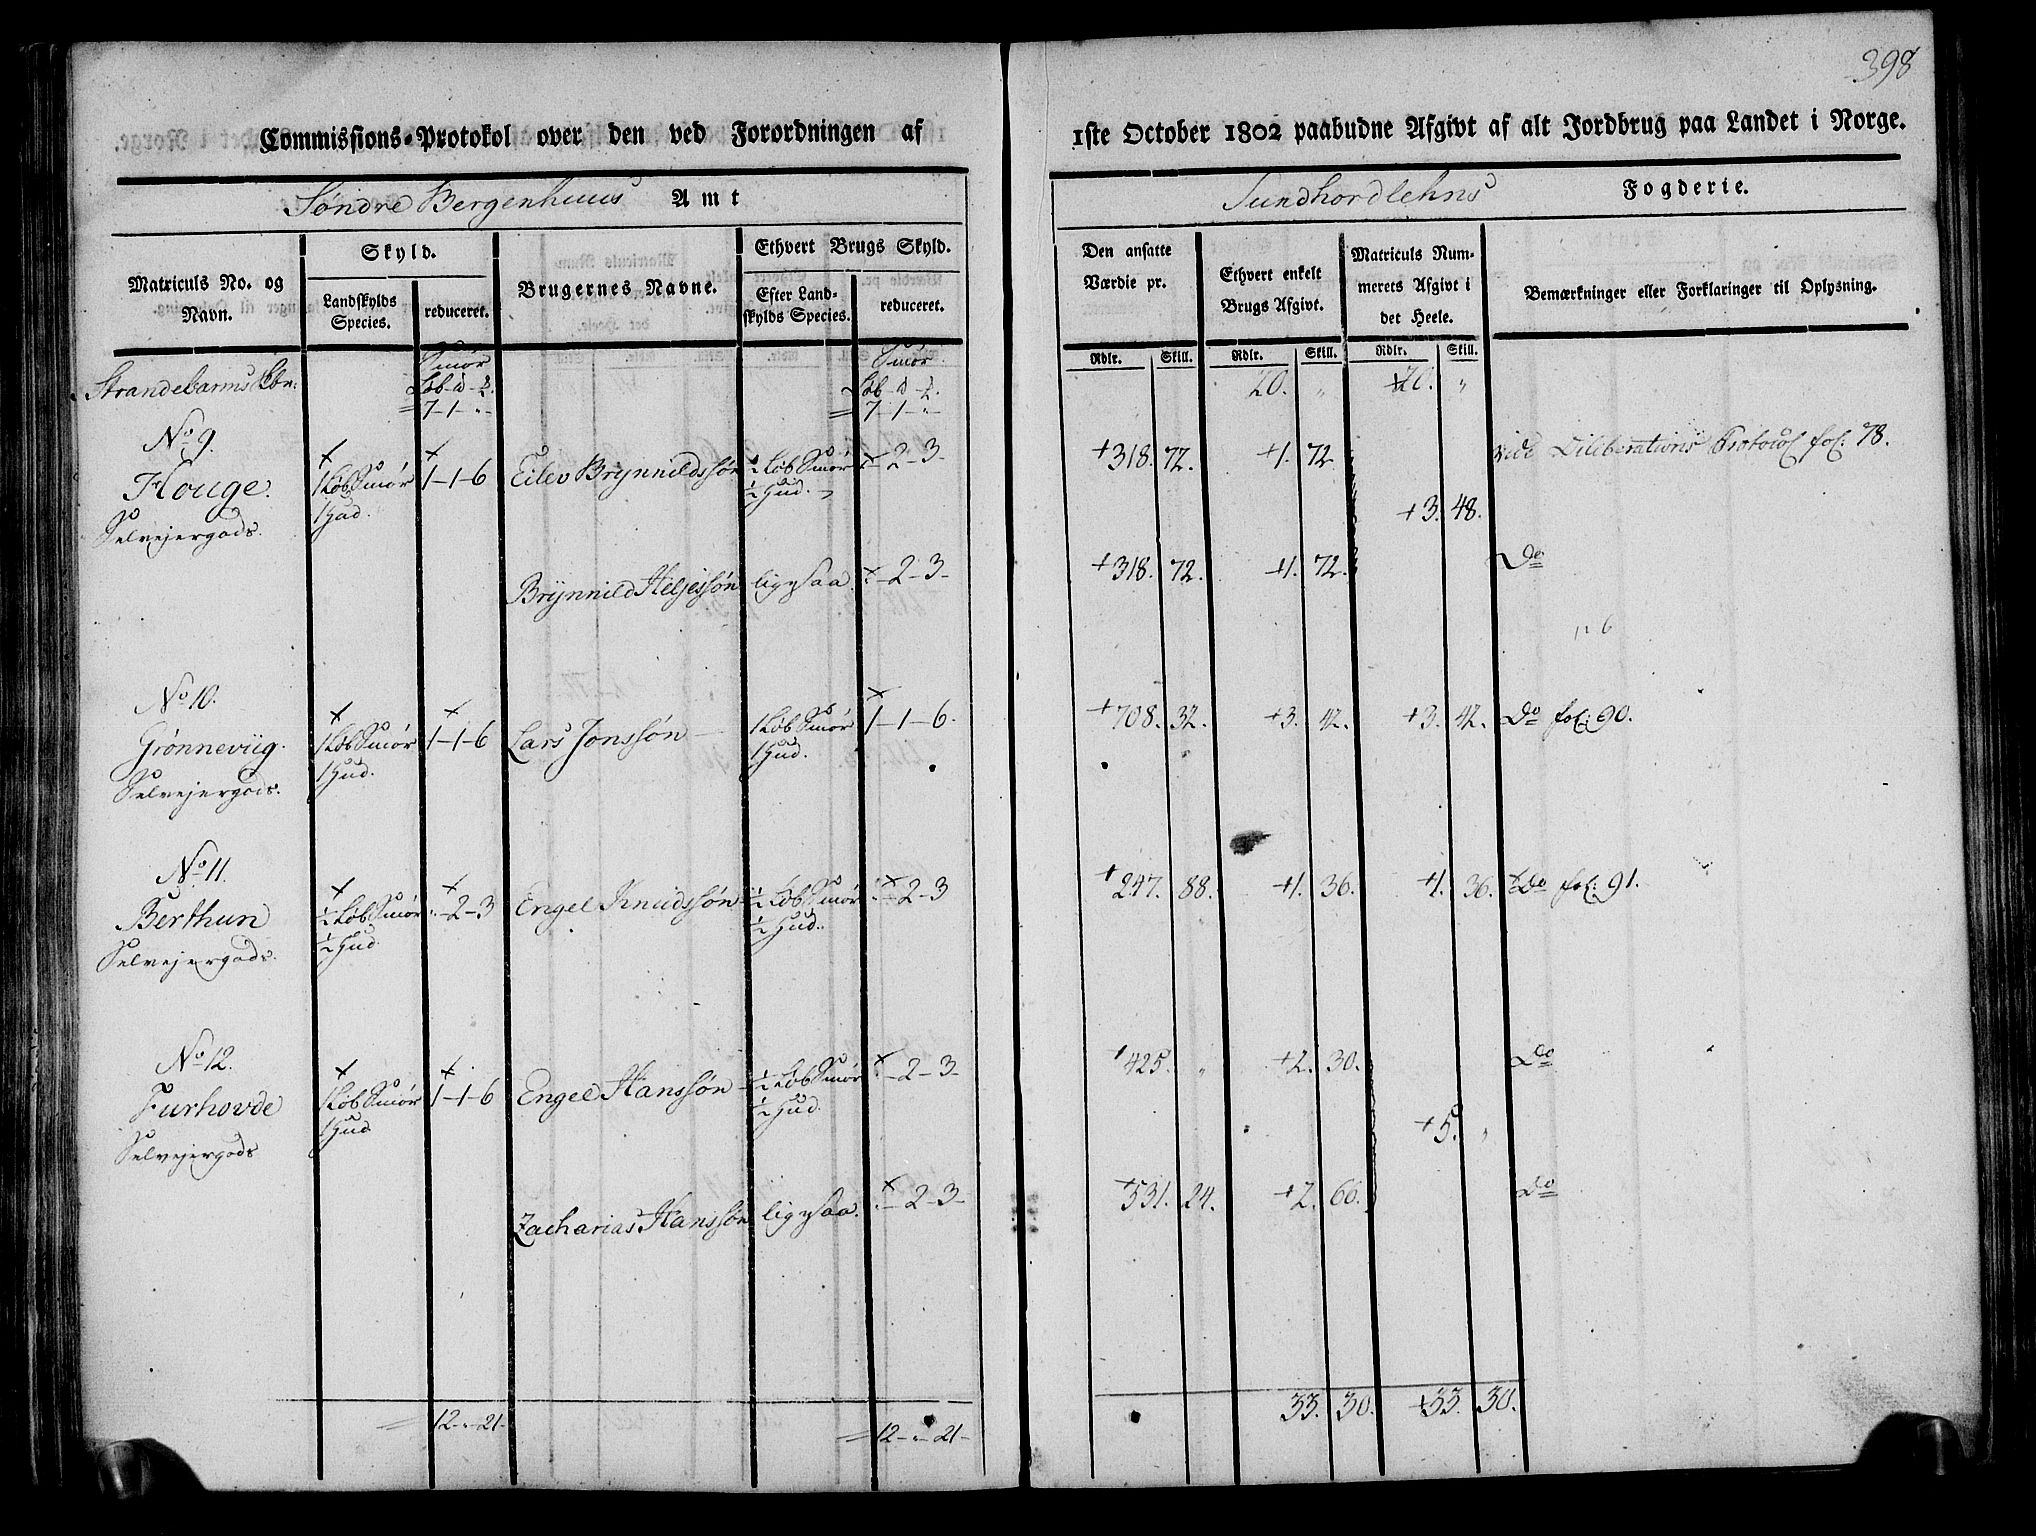 398
Commissions-Protokol over den ved Forordningen af 1ste October 1802 paabudne Afgivt af alt Jordbrug paa Landet i Norge.
Søndre Bergenhuus Amt Sundhordlehns Fogderie.
Matriculs No. og Navn.
Skyld.
Landskylds Species.
reduceret.
Brugernes Navne.
Ethvert Brugs Skyld.
Efter Landskylds Species.
reduceret.
Den ansatte Værdie pr.
Ethvert enkelt Brugs Afgivt.
Matriculs Nummerets Afgivt i det Heele.
Bemærkninger eller Forklaringer til Oplysning.
Rdlr. Skill. Rdlr. Skill. Rdlr. Skill.
Smør Smør
Strandebarms 20. " +20. "
= 7-1-"- = 7-1-"-
No 9.
Houge. 1 Løb Smør 1-1-6 Eilev Brynnildssøn ½ Løb Smør "-2-3- +318. 72. +1. 72 vide Deliberations Protocol fol: 78.
1 Hud. ½ Hud.
Selvejergods. +3. 48.
Brynnild Heljessøn ligesaa "-2-3- +318. 72. +1. 72. Do
No 10.
Grønneviig. 1 Løb Smør 1-1-6 Lars Jonssøn 1 Løb Smør 1-1-6. +708. 32. +3. 42. +3. 42. Do fol: 90.
1 Hud. 1 Hud.
Selvejergods.
No 11.
Berthun ½ Løb Smør "-2-3 Engel Knudssøn ½ Løb Smør "-2-3 +247. 88. +1. 36. +1. 36. Do fol: 91.
½ Hud ½ Hud.
Selvejergods.
No 12.
Furhovde 1 Løb Smør 1-1-6 Engel Hanssøn ½ Løb Smør "-2-3- +425. " +2. 30. Do
1 Hud ½ Hud.
Selvejergods +5. "
Zacharias Hanssøn ligesaa. "-2-3- +531. 24. +2. 66. Do
= 12-"-21- = 12-"-21- 33. 30. +33. 30.